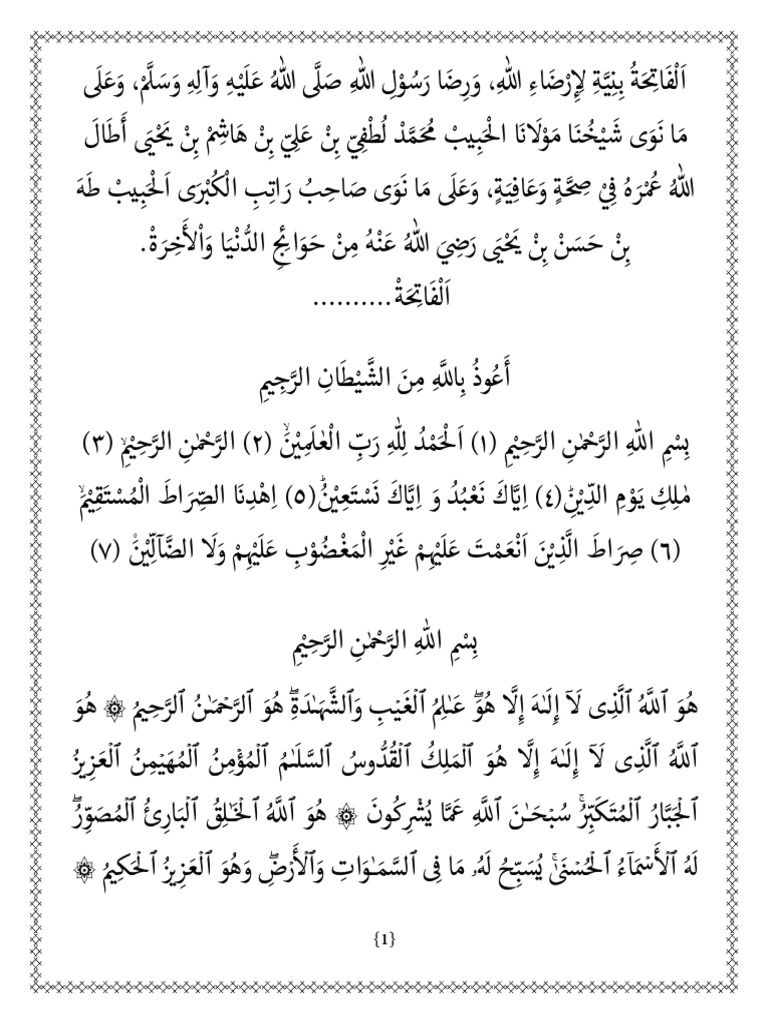 اَلْفَاتِحَةُ بِنِيَّةِ لِإِرْضَاءِ اللهِ، وَرِضَا رَسُوْلِ اللهِ صَلَّى اللهُ عَلَيْهِ وَآلِهِ وَسَلَّمْ، وَعَلَى
مَا نَوَى شَيْخُنَا مَوْلَانَا الْحَبِيبْ مُحَمَّدْ لُطْفِيّ بِنْ عَلِيّ بِنْ هَاشِمْ بِنْ يَحْيَى أَطَالَ
اللهُ عُمْرَهُ فِيْ صِحَّةٍ وَعَافِيَةٍ، وَعَلَى مَا نَوَى صَاحِبُ رَاتِبِ الْكُبْرَى اَلْحَبِيبْ طَهَ
بِنْ حَسَنْ بِنْ يَحْيَى رَضِيَ اللهُ عَنْهُ مِنْ حَوَائِجِ الدُّنْيَا وَاْلأَخِرَةْ.
اَلْفَاتِحَةْ..........
أَعُوذُ بِاللَّهِ مِنَ الشَّيْطَانِ الرَّجِيمِ
بِسْمِ اللهِ الرَّحْمٰنِ الرَّحِيْمِ (١) اَلْحَمْدُ لِلّٰهِ رَبِّ الْعٰلَمِيْنَۙ (٢) الرَّحْمٰنِ الرَّحِيْمِۙ (٣)
مٰلِكِ يَوْمِ الدِّيْنِۗ (٤) اِيَّاكَ نَعْبُدُ وَ اِيَّاكَ نَسْتَعِيْنُۗ (٥) اِهْدِنَا الصِّرَاطَ الْمُسْتَقِيْمَۙ
(٦) صِرَاطَ الَّذِيْنَ اَنْعَمْتَ عَلَيْهِمْ غَيْرِ الْمَغْضُوْبِ عَلَيْهِمْ وَلَا الضَّاۤلِّيْنَۙ (٧)
بِسْمِ اللهِ الرَّحْمٰنِ الرَّحِيْمِ
هُوَ ٱللَّهُ ٱلَّذِى لَآ إِلَـٰهَ إِلَّا هُوَۖ عَـٰلِمُ ٱلْغَيْبِ وَٱلشَّهَـٰدَةِۖ هُوَ ٱلرَّحْمَـٰنُ ٱلرَّحِيمُ ۞ هُوَ
ٱللَّهُ ٱلَّذِى لَآ إِلَـٰهَ إِلَّا هُوَ ٱلْمَلِكُ ٱلْقُدُّوسُ ٱلسَّلَـٰمُ ٱلْمُؤْمِنُ ٱلْمُهَيْمِنُ ٱلْعَزِيزُ
ٱلْجَبَّارُ ٱلْمُتَكَبِّرُۚ سُبْحَـٰنَ ٱللَّهِ عَمَّا يُشْرِكُونَ ۞ هُوَ ٱللَّهُ ٱلْخَـٰلِقُ ٱلْبَارِئُ ٱلْمُصَوِّرُۖ
لَهُ ٱلْأَسْمَآءُ ٱلْحُسْنَىٰۚ يُسَبِّحُ لَهُۥ مَا فِى ٱلسَّمَـٰوَاتِ وَٱلْأَرْضِۖ وَهُوَ ٱلْعَزِيزُ ٱلْحَكِيمُ ۞
{1}